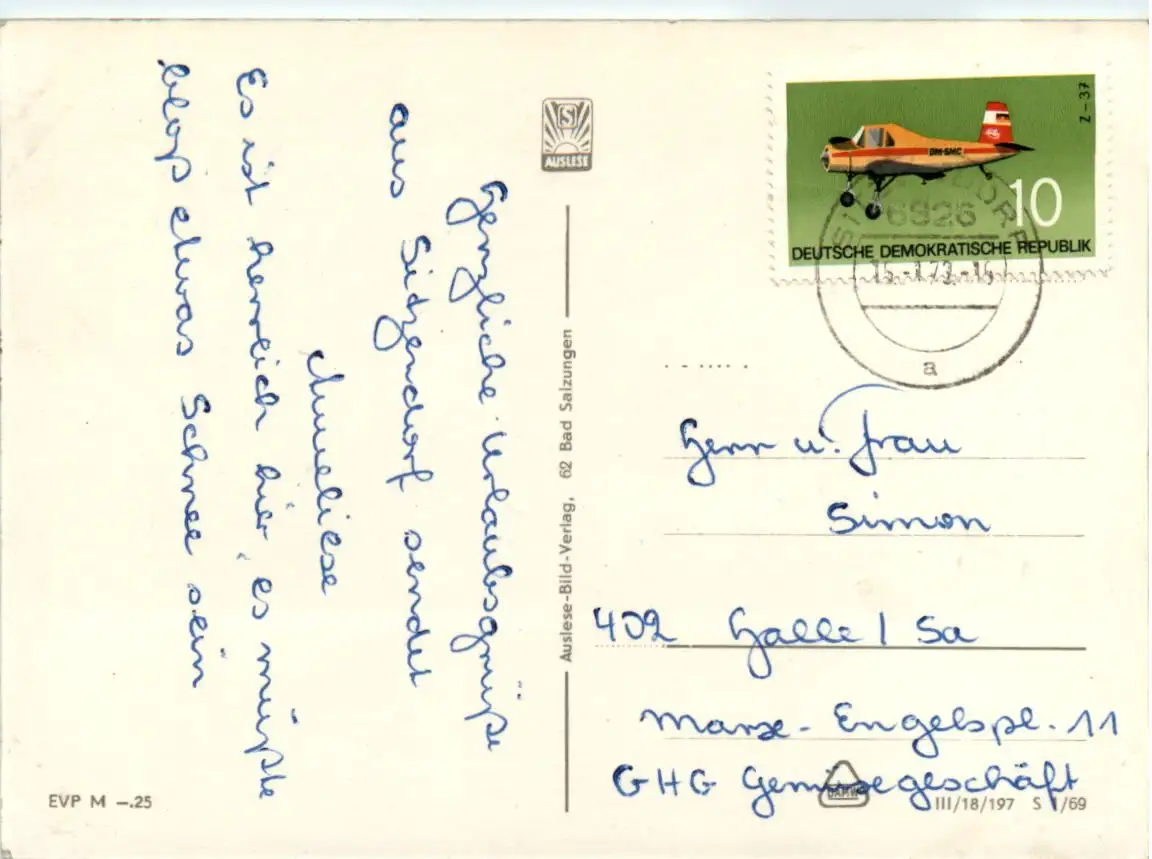 Herzliche Urlaubsgrüße
aus Sitzendorf sendet
Anneliese
Es ist herrlich hier, es müßte
bloß etwas Schnee sein
AUSLESE
Auslese-Bild-Verlag, 62 Bad Salzungen
EVP M –.25
Z–37
DM-SMC
10
DEUTSCHE DEMOKRATISCHE REPUBLIK
SITZENDORF
6826
15.-1.73-16
a
Herr u. Frau
Simon
402 Halle / Sa
Marx-Engelspl. 11
GHG Gemüsegeschäft
III/18/197 S 1/69